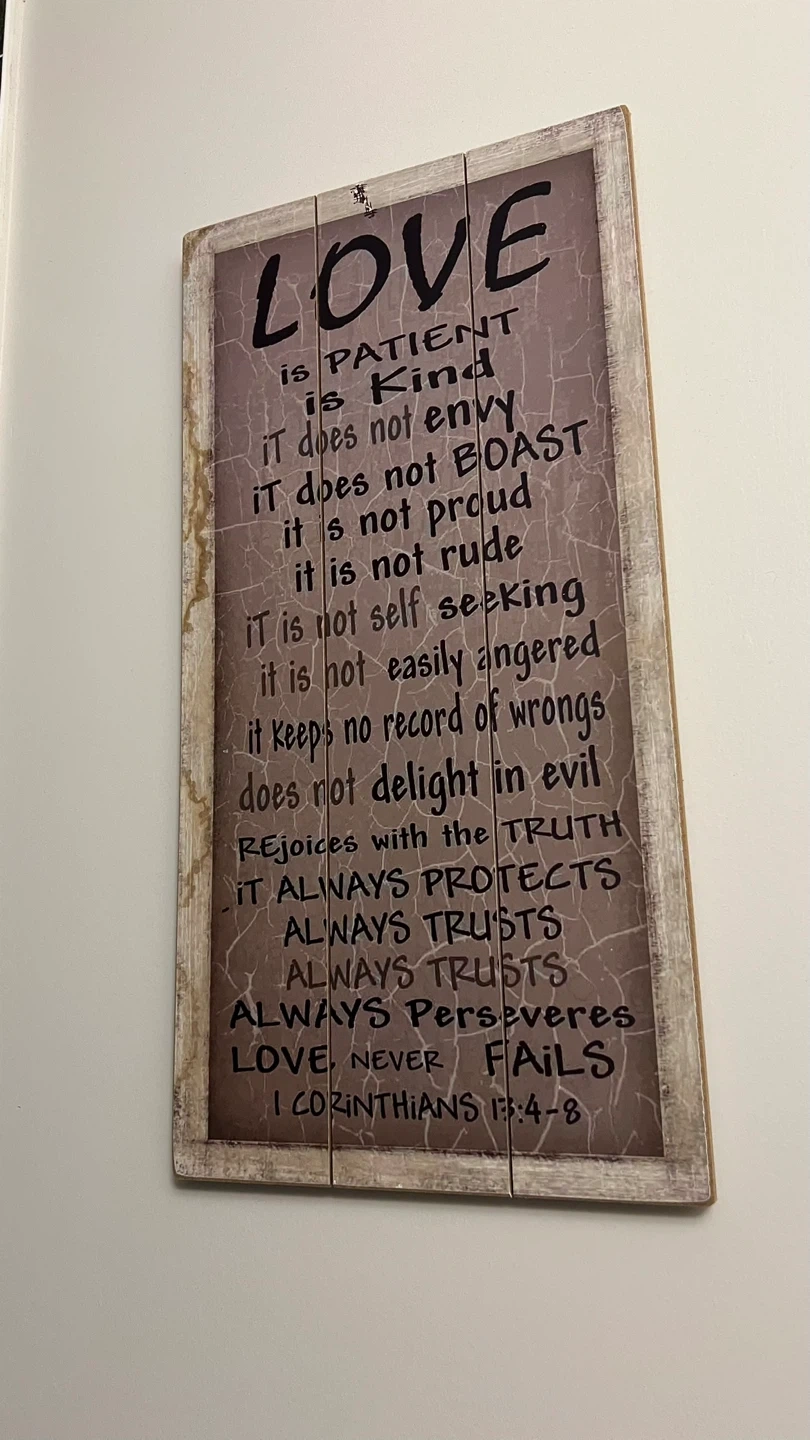 LOVE
is PATIENT
is Kind
iT does not envy
iT does not BOAST
it is not proud
it is not rude
iT is not self seeking
it is not easily angered
it keeps no record of wrongs
does not delight in evil
REjoices with the TRUTH
iT ALWAYS PROTECTS
ALWAYS TRUSTS
ALWAYS TRUSTS
ALWAYS Perseveres
LOVE, NEVER FAiLS
1 CORiNTHiANS 13:4-8